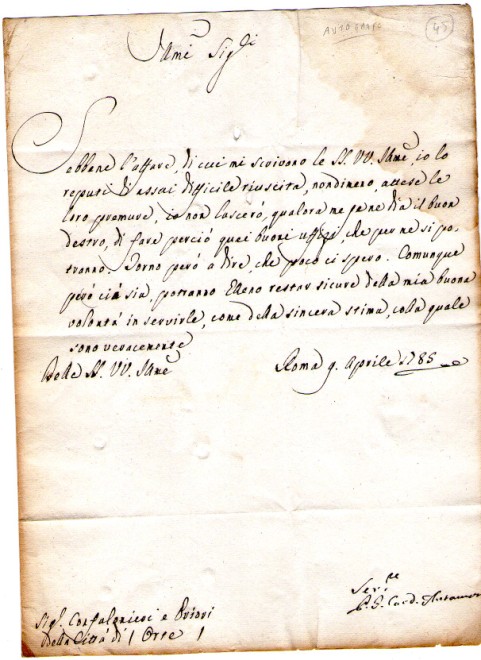 AUTOGRAFO
45
Illme Sigri
Sebbene l'affare, di cui mi scrivono le SS. VV. Illme, io lo
reputi di assai difficile riuscita, nondimeno, attese le
loro premure, io non lascerò, qualora me ne dia il buon
destro, di fare perciò quei buoni uffizj, che per me si po-
tranno. Torno però a dire, che poco ci spero. Comunque
però ciò sia, potranno Elleno restar sicure della mia buona
volontà in servirle, come della sincera stima, colla quale
sono veracemente
Delle SS. VV. Illme
Roma 9. Aprile 1785
Sigri Confalonieri e Priori
Della Città di Orte
Servre
Card. Antamori